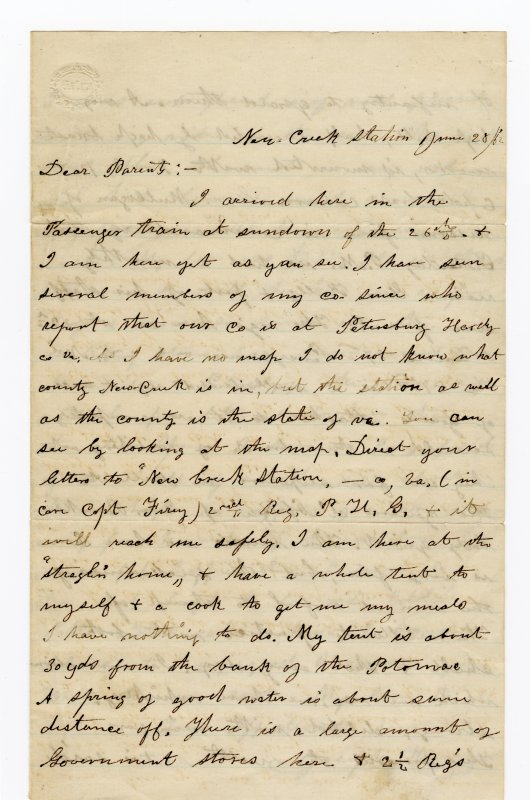 New-Creek Station June 28/62
Dear Parents:-
I arrived here in the
Passenger train at sundown of the 26th. &
I am here yet as you see. I have seen
several members of my co. since who
report that our Co is at Petersburg Hardy
co va. As I have no map I do not know what
county New-Creek is in, but the station as well
as the county is the state of va. You can
see by looking at the map. Direct your
letters to "New Creek Station, — co, Va. (in
care Capt Firey) 2nd Reg. P. H. B. & it
will reach me safely. I am here at the
"straglers home," & have a whole tent to
myself & a cook to get me my meals
I have nothing to do. My tent is about
30 yds from the bank of the Potomac
A spring of good water is about same
distance off. There is a large amount of
Government stores here & 2 1/2 Reg's